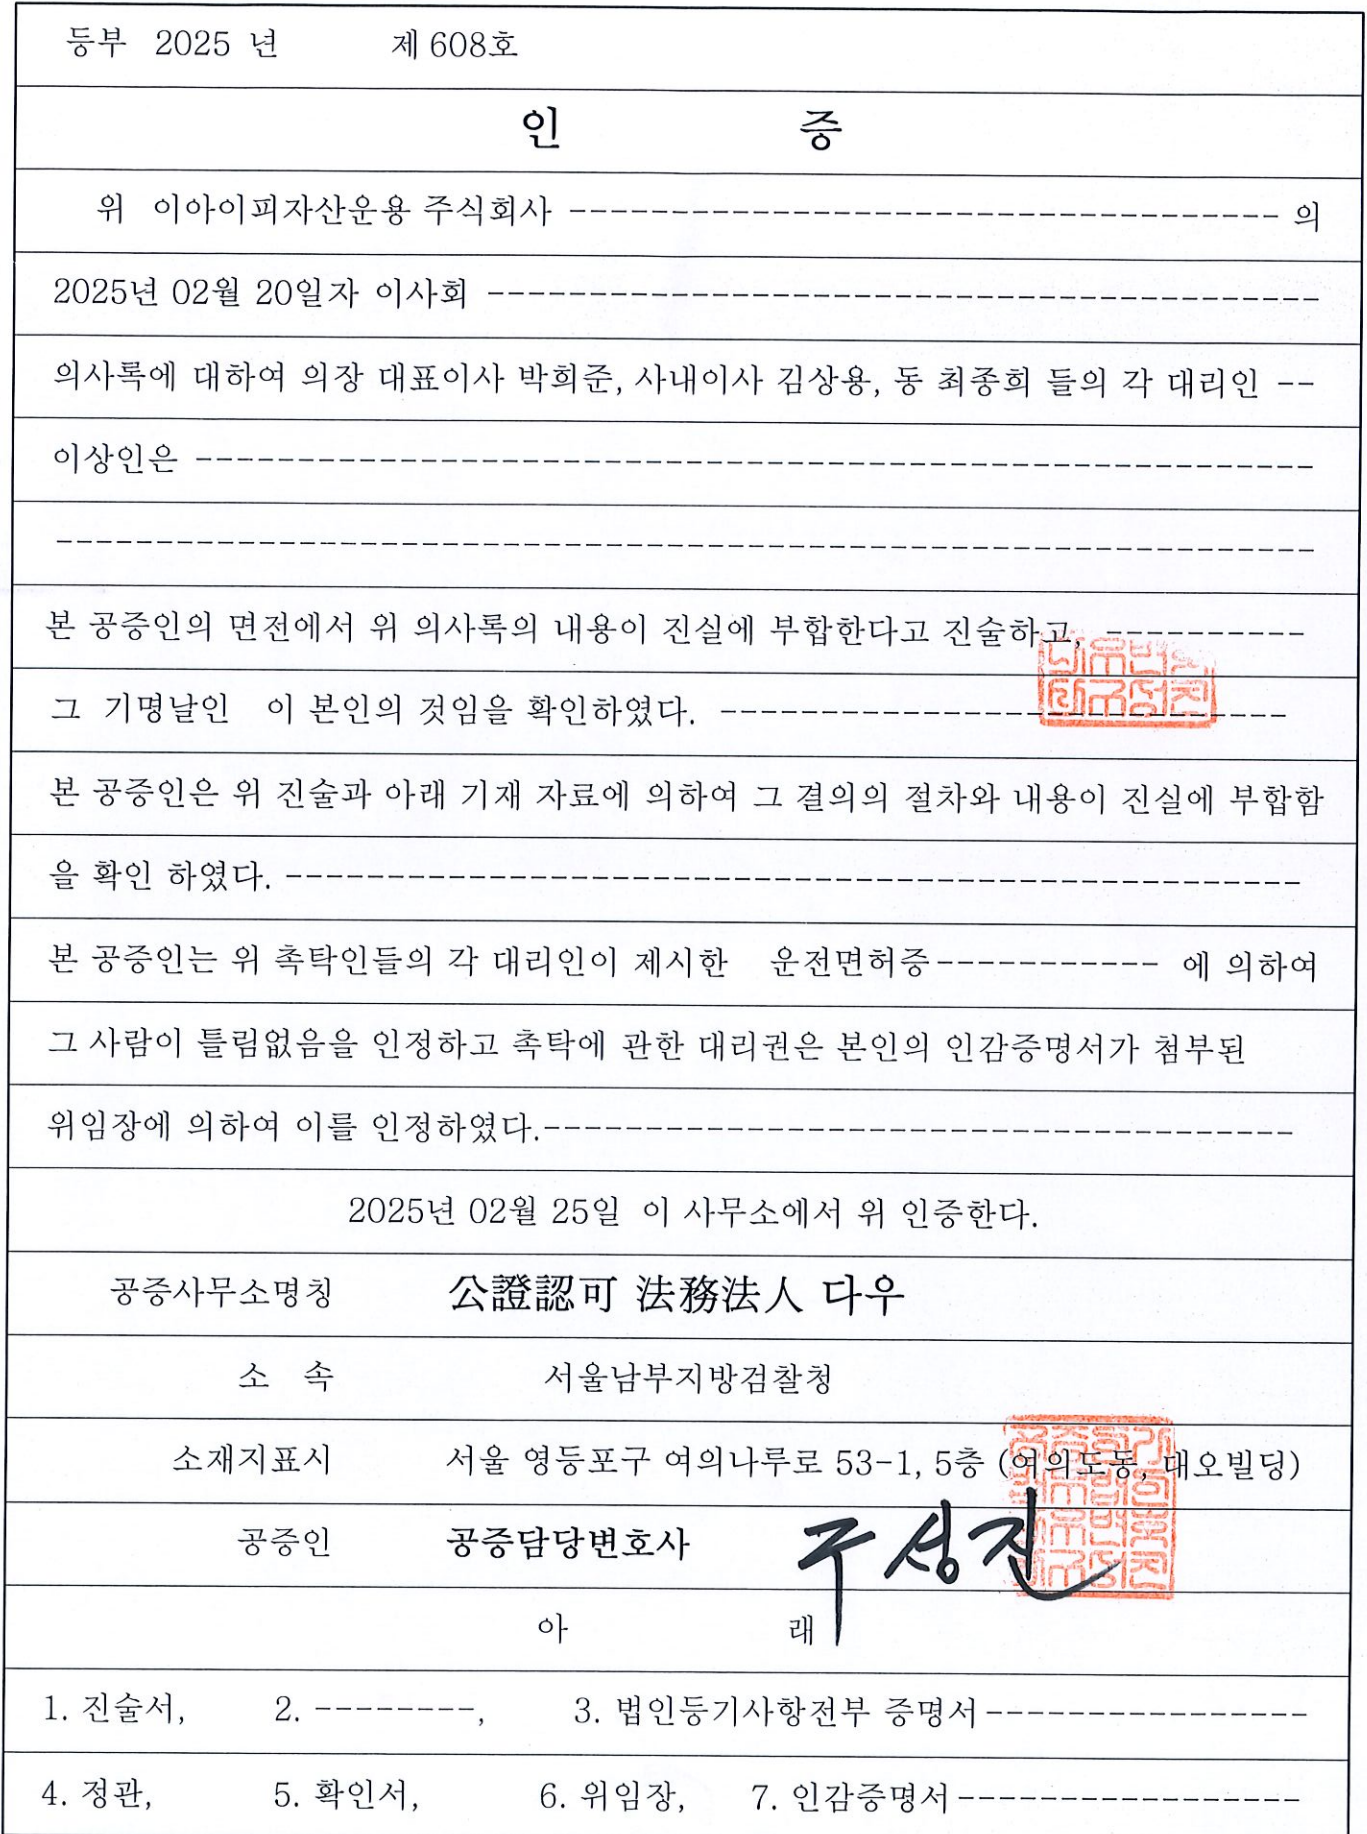 등부 2025 년 제 608호
인 증
위 이아이피자산운용 주식회사 ----------------------------------- 의
2025년 02월 20일자 이사회 -----------------------------------------
의사록에 대하여 의장 대표이사 박희준, 사내이사 김상용, 동 최종희 들의 각 대리인 --
이상인은 -------------------------------------------------------
--------------------------------------------------------------
본 공증인의 면전에서 위 의사록의 내용이 진실에 부합한다고 진술하고, ----------
그 기명날인 이 본인의 것임을 확인하였다. ----------------------------
본 공증인은 위 진술과 아래 기재 자료에 의하여 그 결의의 절차와 내용이 진실에 부합함
을 확인 하였다. --------------------------------------------------
본 공증인는 위 촉탁인들의 각 대리인이 제시한 운전면허증----------- 에 의하여
그 사람이 틀림없음을 인정하고 촉탁에 관한 대리권은 본인의 인감증명서가 첨부된
위임장에 의하여 이를 인정하였다.-------------------------------------
2025년 02월 25일 이 사무소에서 위 인증한다.
공증사무소명칭 公證認可 法務法人 다우
소 속 서울남부지방검찰청
소재지표시 서울 영등포구 여의나루로 53-1, 5층 (여의도동, 대오빌딩)
공증인 공증담당변호사 구성진
아 래
1. 진술서, 2. --------, 3. 법인등기사항전부 증명서----------------
4. 정관, 5. 확인서, 6. 위임장, 7. 인감증명서-----------------